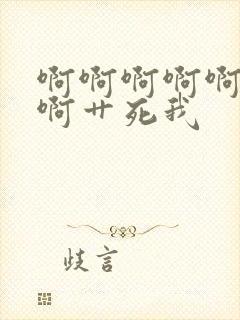 啊啊啊啊啊
啊艹死我
歧言